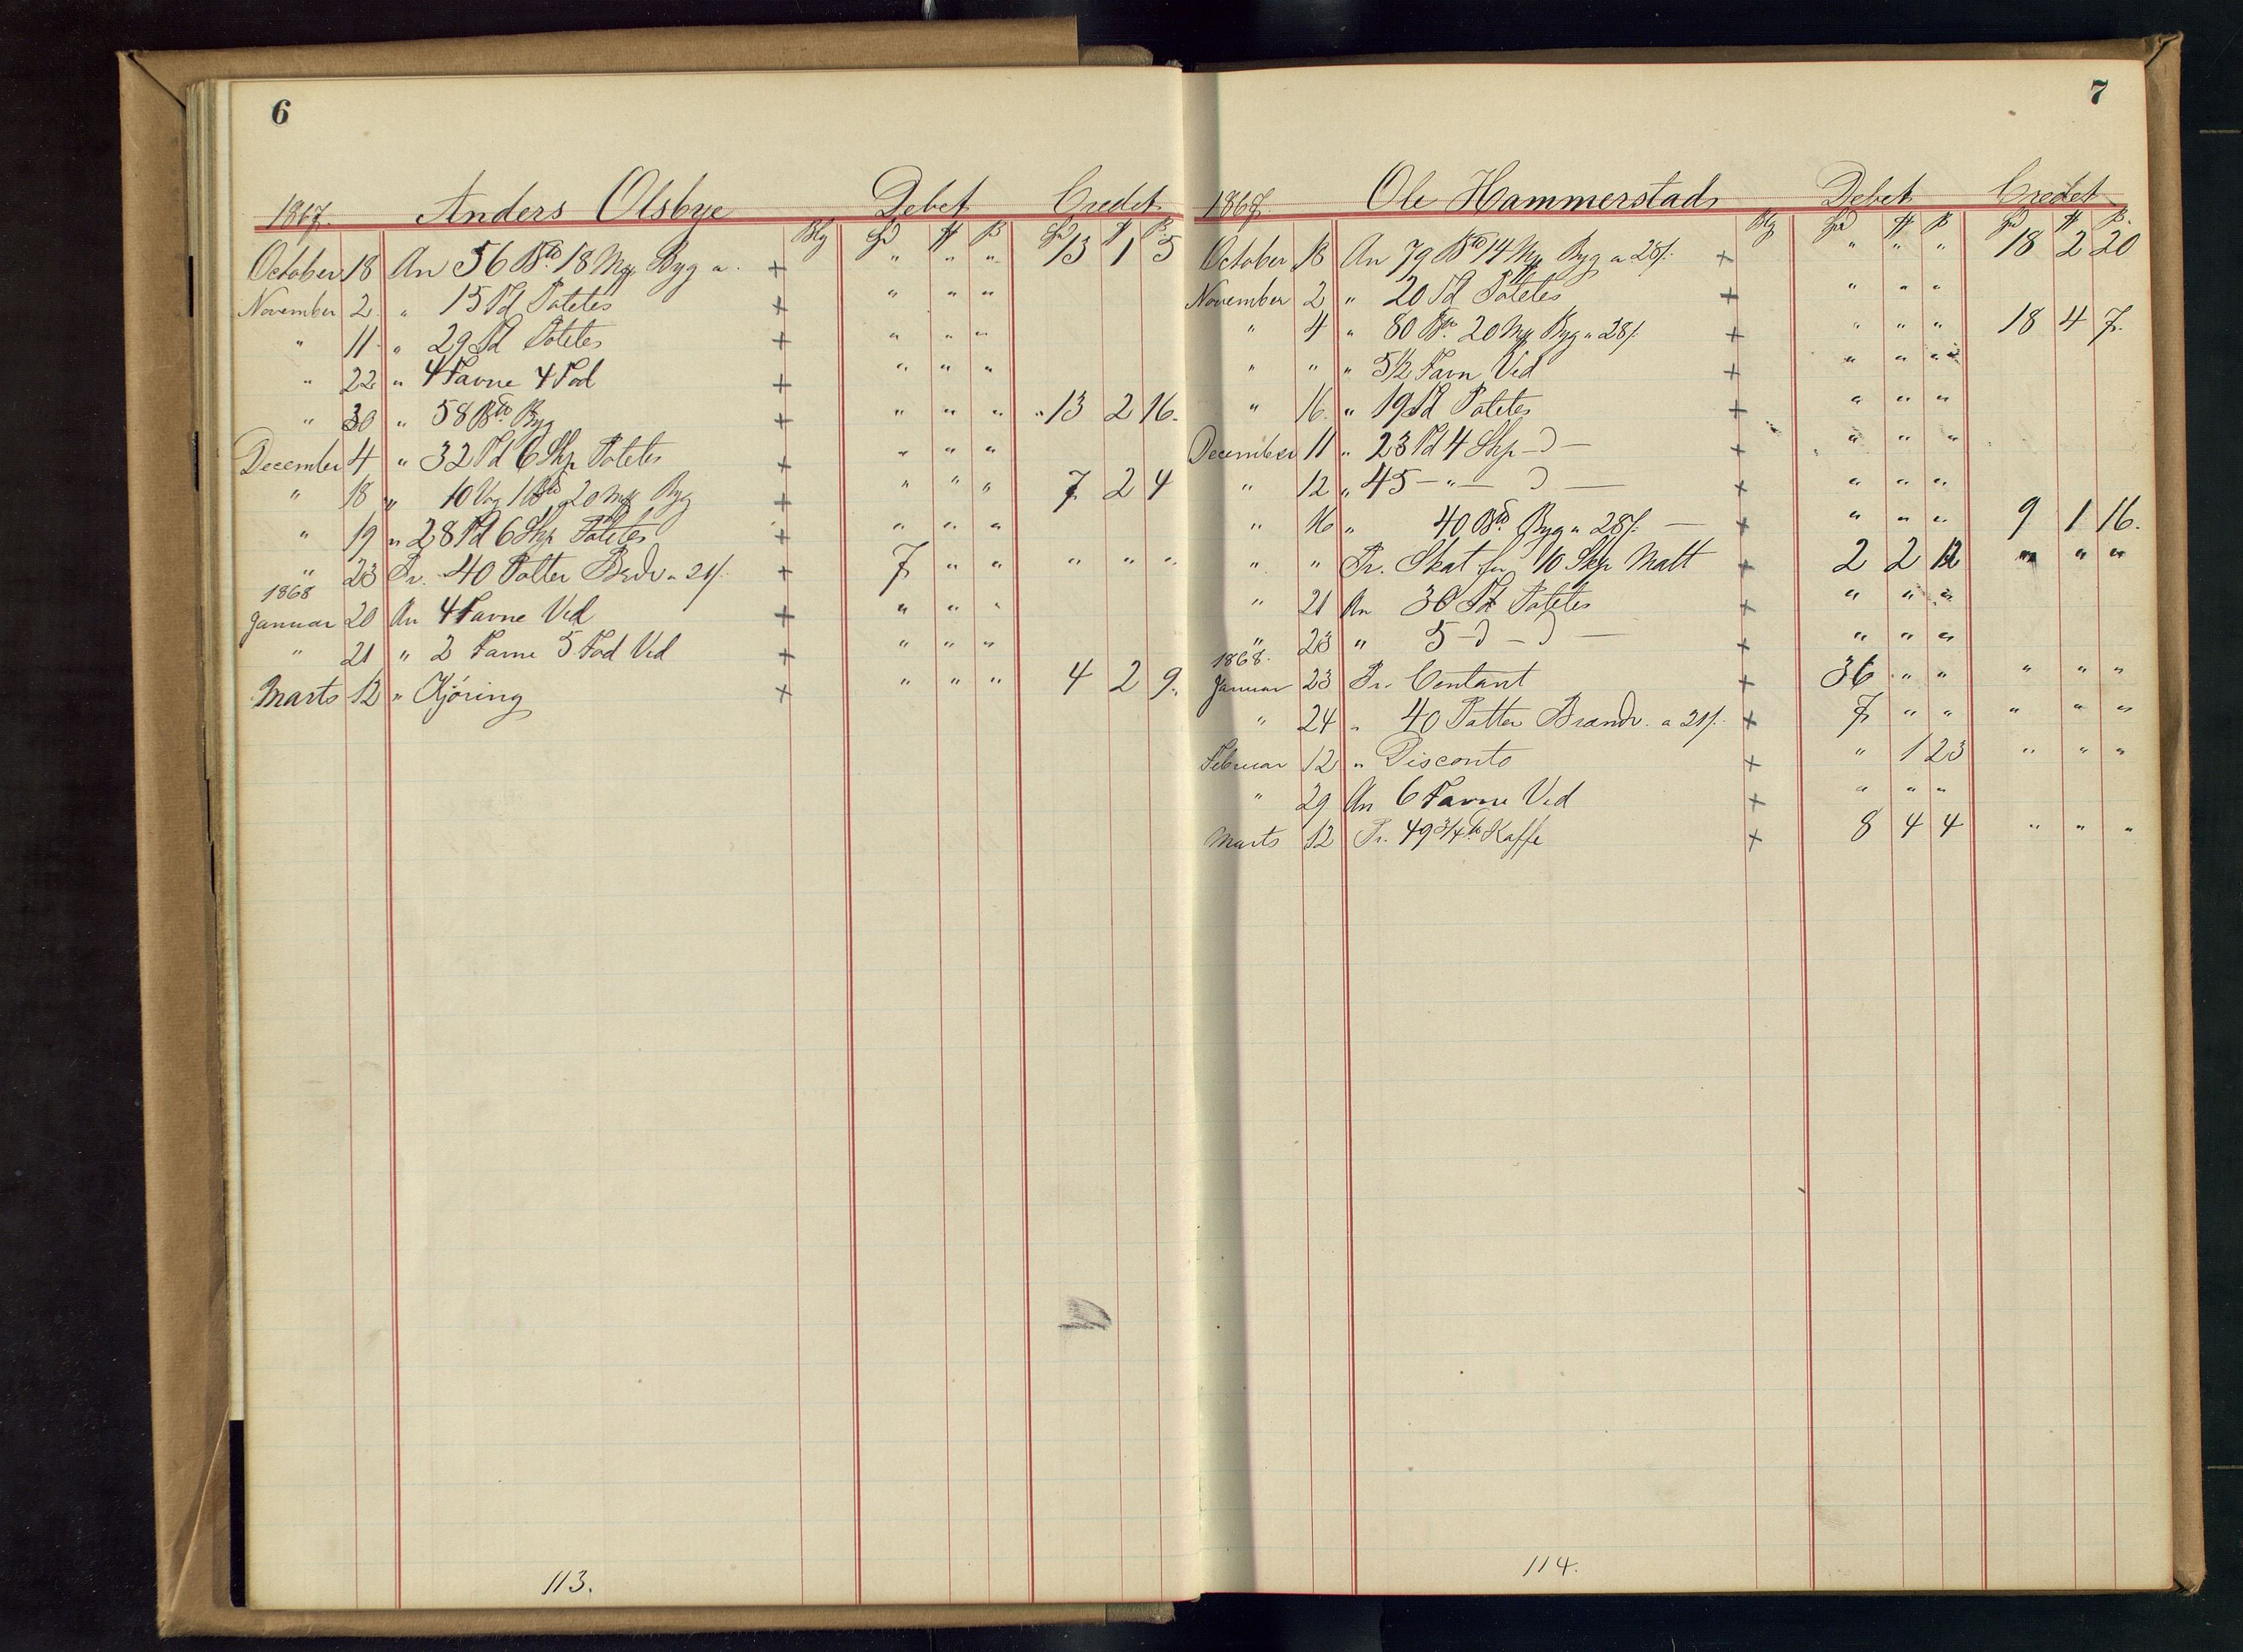 6
1867. Anders Olsbye Debet Credet
Blg Spd # ß Spd # ß
October 18 An 56 Btd 18 Mrk Byg a. + " " " 13 1 5
November 2. " 15 Td Poteter + " " "
" 11 " 29 Td Poteter + " " "
" 22 " 4 Favne 4 Fod + " " "
" 30 " 58 Btd Byg + " " " " 13 2 16.
December 4 " 32 Td 6 Skp Poteter + " " "
" 18 " 10 Vog 1 Btd 20 Mrk Byg + " " " 7 2 4
" 19 " 28 Td 6 Skp Poteter + " " "
" 23 Pr. 40 Potter Brdv a 21/. + 7 " " " " "
1868
Januar 20 An 4 Favne Ved + " " "
" 21 " 2 Favne 5 Fod Ved + " " "
Marts 12 " Kjöring + " " " 4 2 9.
113.
7
1867. Ole Hammerstad Debet Credet
Blg Spd # ß Spd # ß.
October 18 An 79 Btd 14 Mrk Byg a 28/. + " " " 18 2 20
November 2 " 20 Td Poteter + " " "
" 4 " 80 Btd 20 Mrk Byg a 28/. + " " " 18 4 7.
" " " 5 1/2 Favn Ved + " " "
" 16. " 19 Td Poteter + " " "
December 11 " 23 Td 4 Skp – d – + " " "
" 12 " 45 – " – d – + " " "
" 16 " 40 Btd Byg a 28/. – + " " " 9 1 16.
" " Pr. Skat for 10 Skp Malt + 2 2 12 " " "
" 21 An 30 Td Poteter + " " "
" 23 " 5 – d – d – + " " "
1868.
Januar 23 Pr. Contant + 36 " " " " "
" 24 " 40 Potter Brændv. a 21/. + 7 " " " " "
Februar 12 " Disconto + " 1 23 " " "
" 29 An 6 Favne Ved + " " "
Marts 12 Pr. 49 3/4 tb Kaffe + 8 4 4 " " "
114.